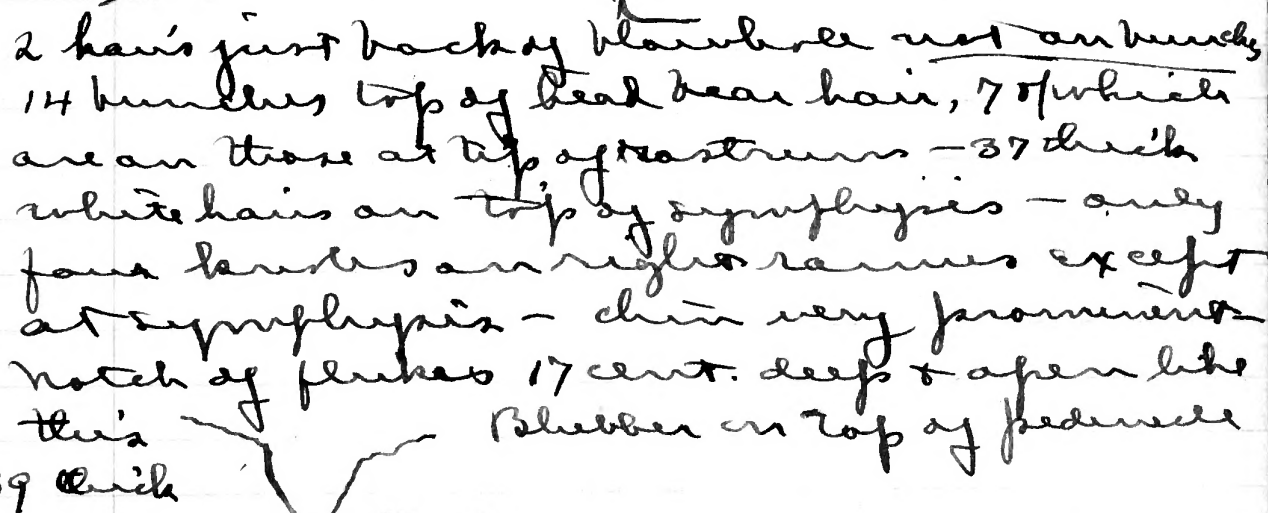 2 hairs just back of blowhole not on bunches
14 bunches top of head bear hair, 7 of which
are on those at tip of rostrum – 37 thick
white hairs on top of symphysis – only
four knobs on right ramus except
at symphysis – chin very prominent –
Notch of flukes 17 cent. deep & open like
this Blubber on top of peduncle
9 thick